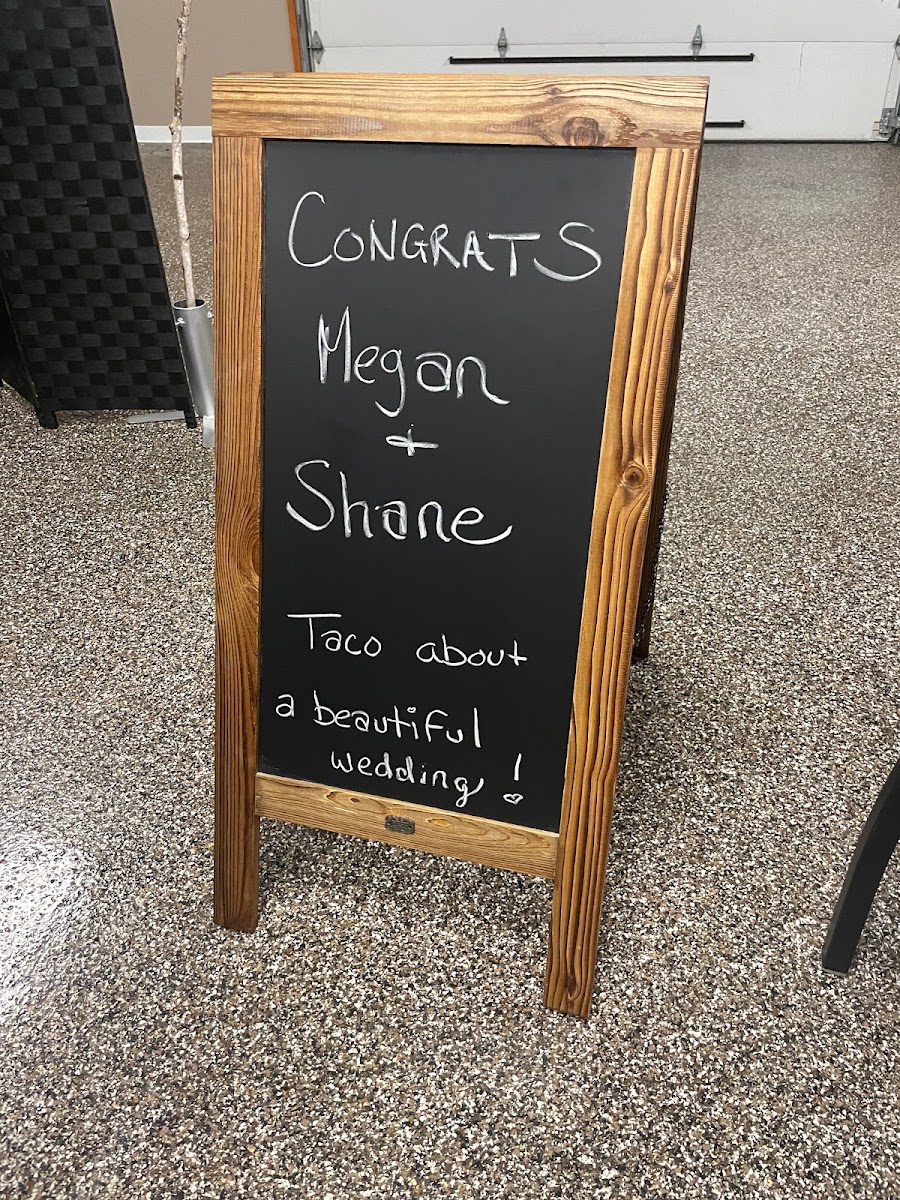 CONGRATS
Megan
+
Shane
Taco about
a beautiful
wedding!